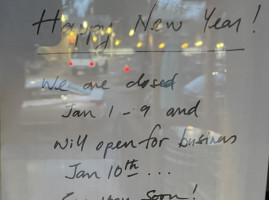 Happy New Year!
We are closed
Jan 1-9 and
will open for business
Jan 10th...
See you Soon!